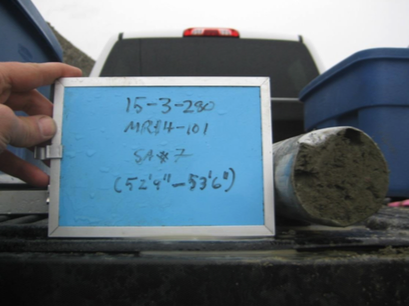 15-3-280
MR84-101
SA#7
(52'9"-53'6")